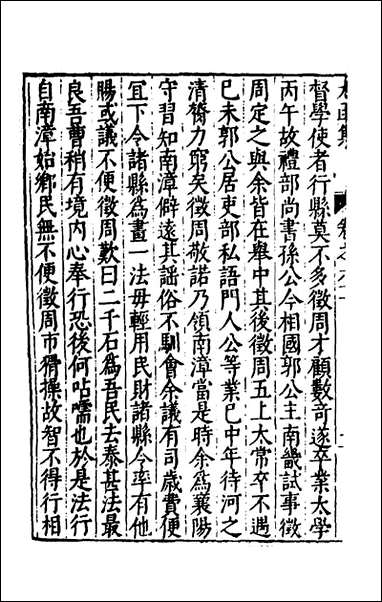 督學使者行縣莫不多徵周才顧數奇遂卒業太學
丙午故禮部尚書孫公今相國郭公主南畿試事徵
周定之與余皆在舉中其後徵周五上太常卒不遇
已未郭公居吏部私語門人公等業已中年待河之
清膂力窮矣徵周敬諾乃領南漳當是時余爲襄陽
守習知南漳僻遠其謡俗不馴會余議有司歲費便
宜下令諸縣爲畫一法毋輕用民財諸縣令率有他
腸或議不便徵周歎曰二千石爲吾民去泰甚法最
良吾曹稍有境内心奉行恐後何呫嚅也於是法行
自南漳始鄉民無不便徵周市猾操故智不得行相